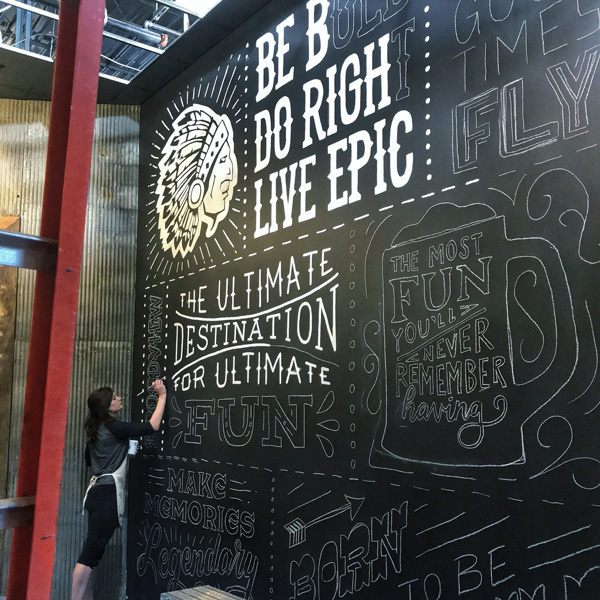 BE BOLD
DO RIGHT
LIVE EPIC
TIMES
FLY
THE ULTIMATE
DESTINATION
FOR ULTIMATE
FUN
THE MOST
FUN
YOU'LL
NEVER
REMEMBER
having
MAKE
MEMORIES
Legendary
BORN
TO BE